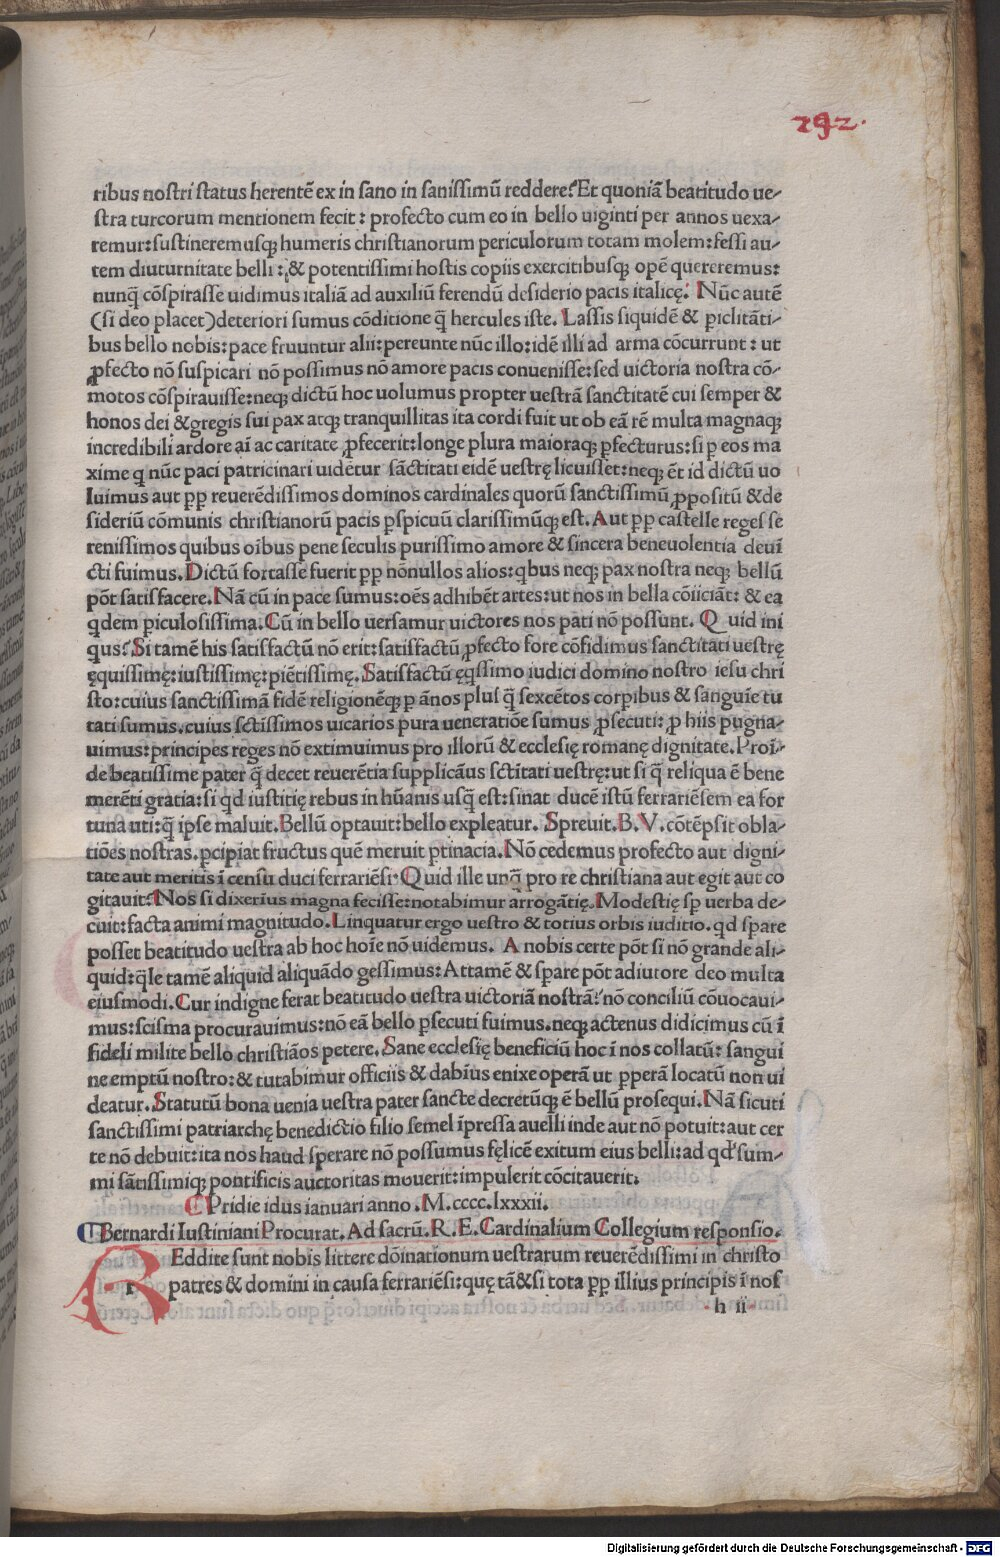 292.
ribus nostri status herentē ex in sano in sanissimū reddere? Et quoniā beatitudo ue-
stra turcorum mentionem fecit: profecto cum eo in bello uiginti per annos uexa-
remur: sustineremusq; humeris christianorum periculorum totam molem: fessi au-
tem diuturnitate belli: & potentissimi hostis copiis exercitibusq; opē quereremus:
nunq̄ cōspirasse uidimus italiā ad auxiliū ferendū desiderio pacis italicę. Nūc autē
(si deo placet) deteriori sumus cōditione q̄ hercules iste. Lassis siquidē & p̱iclitāti-
bus bello nobis: pace fruuntur alii: pereunte nūc illo: idē illi ad arma cōcurrunt: ut
ꝓfecto nō suspicari nō possimus nō amore pacis conuenisse: sed uictoria nostra cō-
motos cōspirauisse: neq; dictū hoc uolumus propter uestrā sanctitatē cui semper &
honos dei & gregis sui pax atq; tranquillitas ita cordi fuit ut ob eā rē multa magnaq;
incredibili ardore aī ac caritate ꝓfecerit: longe plura maioraq; ꝑfecturus: si ꝑ eos ma
xime q nūc paci patricinari uidētur sāctitati eidē uestrę licuisset: neq; ēt id dictū uo
luimus aut ꝓꝑ reuerēdissimos dominos cardinales quorū sanctissimū ꝓpositū & de
sideriū cōmunis christianorū pacis ꝑspicuū clarissimūq; est. Aut ꝓꝑ castelle reges se
renissimos quibus oībus pene seculis purissimo amore & sincera beneuolentia deuī
cti fuimus. Dictū fortasse fuerit ꝓꝑ nōnullos alios: qbus neq; pax nostra neq; bellū
pōt satisfacere. Nā cū in pace sumus: oēs adhibēt artes: ut nos in bella cōiiciāt: & ea
qdem ꝑiculosissima. Cū in bello uersamur uictores nos pati nō possunt. Quid ini
qus? Si tamē his satisfactū nō erit: satisfactū ꝓfecto fore cōfidimus sanctitati uestrę
ęquissimę: iustissimę: piētissimę. Satisfactū ęqssimo iudici domino nostro iesu chri
sto: cuius sanctissimā fidē religionēq; ꝑ ānos plus q̄ sexcētos corpibus & sanguīe tu
tati sumus. cuius sctissimos uicarios pura ueneratiōe sumus ꝓsecuti: ꝓ hiis pugna-
uimus: principes reges nō extimuimus pro illorū & ecclesię romanę dignitate. Proī-
de beatissime pater q̄ decet reuerētia supplicāus sctitati uestrę: ut si q̄ reliqua ē bene
merēti gratia: si qd iustitię rebus in hūanis usq̄ est: sinat ducē istū ferrariēsem ea for
tuna uti: q̄ ipse maluit. Bellū optauit: bello expleatur. Spreuit. B. V. cōtēpsit obla-
tiōes nostras. ꝑcipiat fructus quē meruit ptinacia. Nō cedemus profecto aut digni-
tate aut meritis ī censu duci ferrariēsi. Quid ille unq̄ pro re christiana aut egit aut co
gitauit? Nos si dixerius magna fecisse: notabimur arrogātię. Modestię sꝑ uerba de-
cuit: facta animi magnitudo. Linquatur ergo uestro & totius orbis iuditio. qd spare
posset beatitudo uestra ab hoc hoīe nō uidemus. A nobis certe pōt si nō grande ali-
quid: qle tamē aliquid aliquādo gessimus: Attamē & sꝑare pōt adiutore deo multa
eiusmodi. Cur indigne ferat beatitudo uestra uictoriā nostrā? nō conciliū cōuocaui-
mus: scisma procurauimus: nō eā bello ꝑsecuti fuimus. neq; actenus didicimus cū ī
fideli milite bello christiāos petere. Sane ecclesię beneficiū hoc ī nos collatū: sangui
ne emptū nostro: & tutabimur officiis & dabius enixe operā ut ꝑperā locatū non ui
deatur. Statutū bona uenia uestra pater sancte decretūq; ē bellū prosequi. Nā sicuti
sanctissimi patriarchę benedictio filio semel īpressa auelli inde aut nō potuit: aut cer
te nō debuit: ita nos haud sperare nō possumus fęlicē exitum eius belli: ad qd' sum-
mi sātissimiq; pontificis auctoritas mouerit: impulerit cōcitauerit.
Pridie idus ianuari anno. M.cccc.lxxxii.
Bernardi Iustiniani Procurat. Ad sacrū. R. E. Cardinalium Collegium responsio.
r Eddite sunt nobis littere dōinationum uestrarum reuerēdissimi in christo
patres & domini in causa ferrariēsi: quę tā&si tota ꝓꝑ illius principis ī nos
h ii
Digitalisierung gefördert durch die Deutsche Forschungsgemeinschaft - DFG